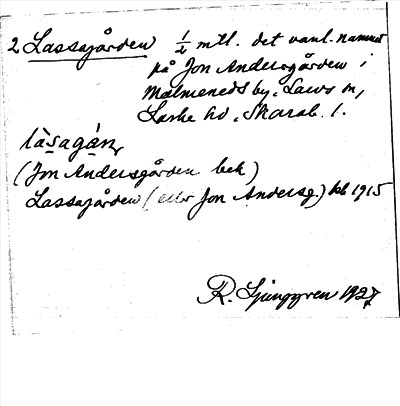 2 Lassagården 1/2 mtl. det vanl. namnet
på Jon Andersgården i
Malmeneds by, Lavs sn,
Laske hd, Skarab. l.
làsagán,
(Jon Andersgården bek)
Lassagården (eller Jon Andersg.) kbk 1915
R. Ljunggren 1927